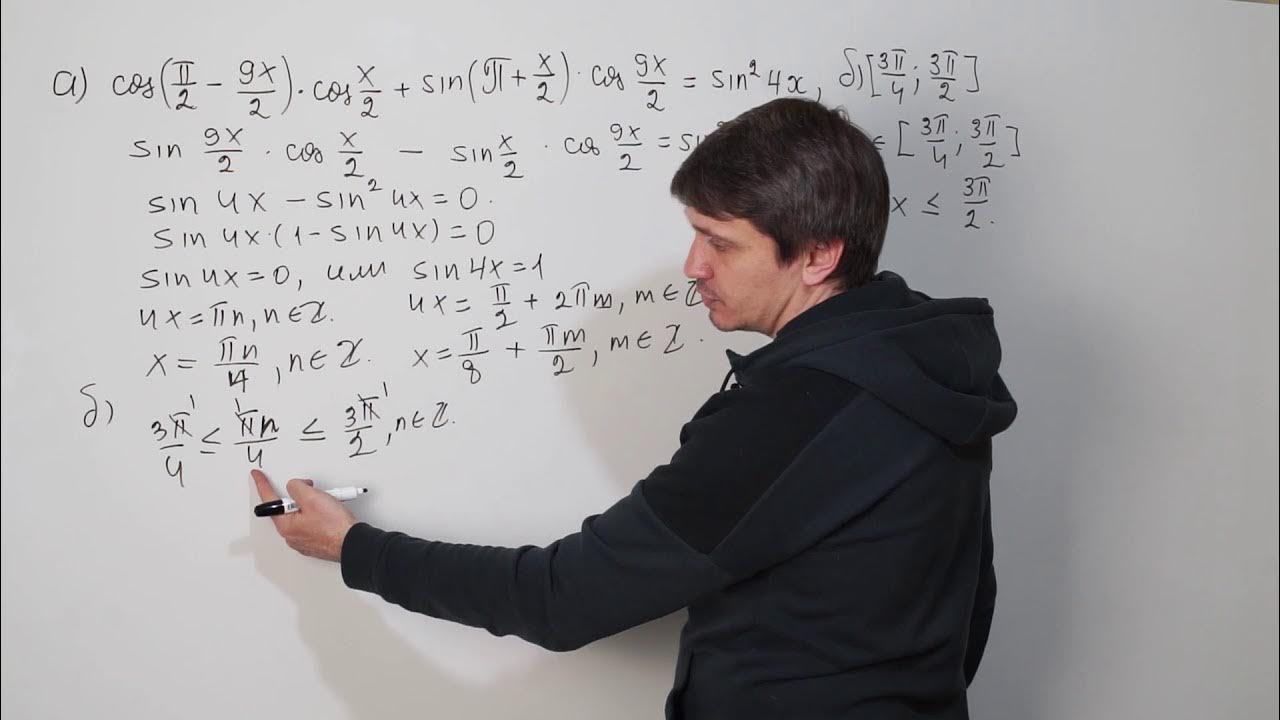 а) cos(π/2 − 9x/2)·cos x/2 + sin(π + x/2)·cos 9x/2 = sin² 4x, б) [3π/4; 3π/2]
sin 9x/2 · cos x/2 − sin x/2 · cos 9x/2 = sin ∈ [3π/4; 3π/2]
sin 4x − sin² 4x = 0. x ≤ 3π/2.
sin 4x·(1 − sin 4x) = 0
sin 4x = 0, или sin 4x = 1
4x = πn, n ∈ Z. 4x = π/2 + 2πm, m ∈ Z
x = πn/4, n ∈ Z. x = π/8 + πm/2, m ∈ Z.
б) 3π/4 ≤ πn/4 ≤ 3π/2, n ∈ Z.